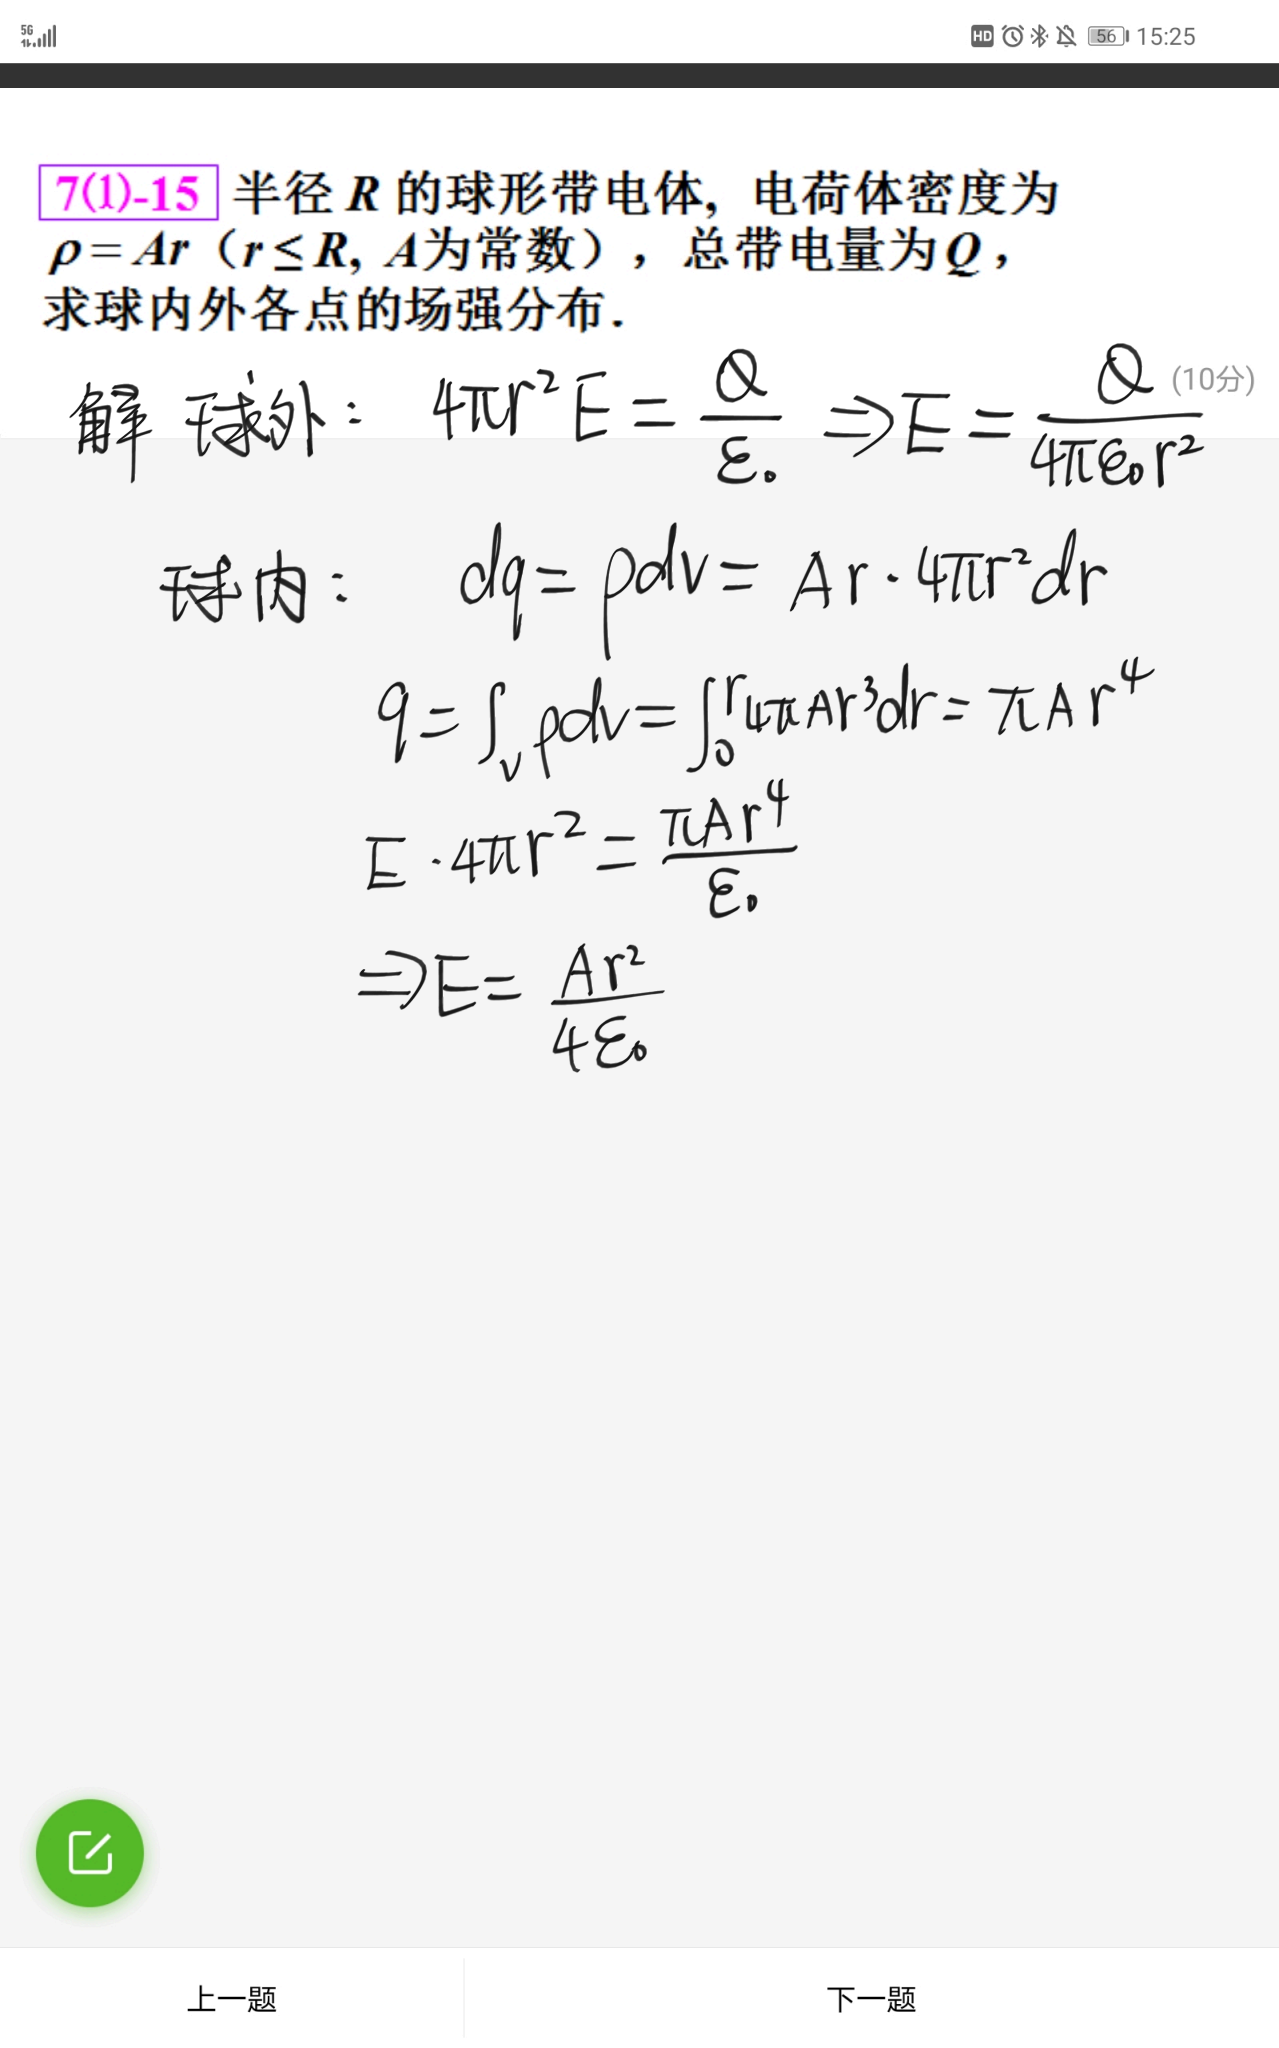 5G HD 56 15:25
7(1)-15 半径 R 的球形带电体, 电荷体密度为
ρ = Ar (r ≤ R, A为常数), 总带电量为Q,
求球内外各点的场强分布.
(10分)
解 球外: 4πr² E = Q/ε₀ ⇒ E = Q/4πε₀r²
球内: dq = ρdv = Ar · 4πr²dr
q = ∫ᵥ ρdv = ∫₀ʳ 4πAr³dr = πAr⁴
E · 4πr² = πAr⁴/ε₀
⇒ E = Ar²/4ε₀
上一题 下一题